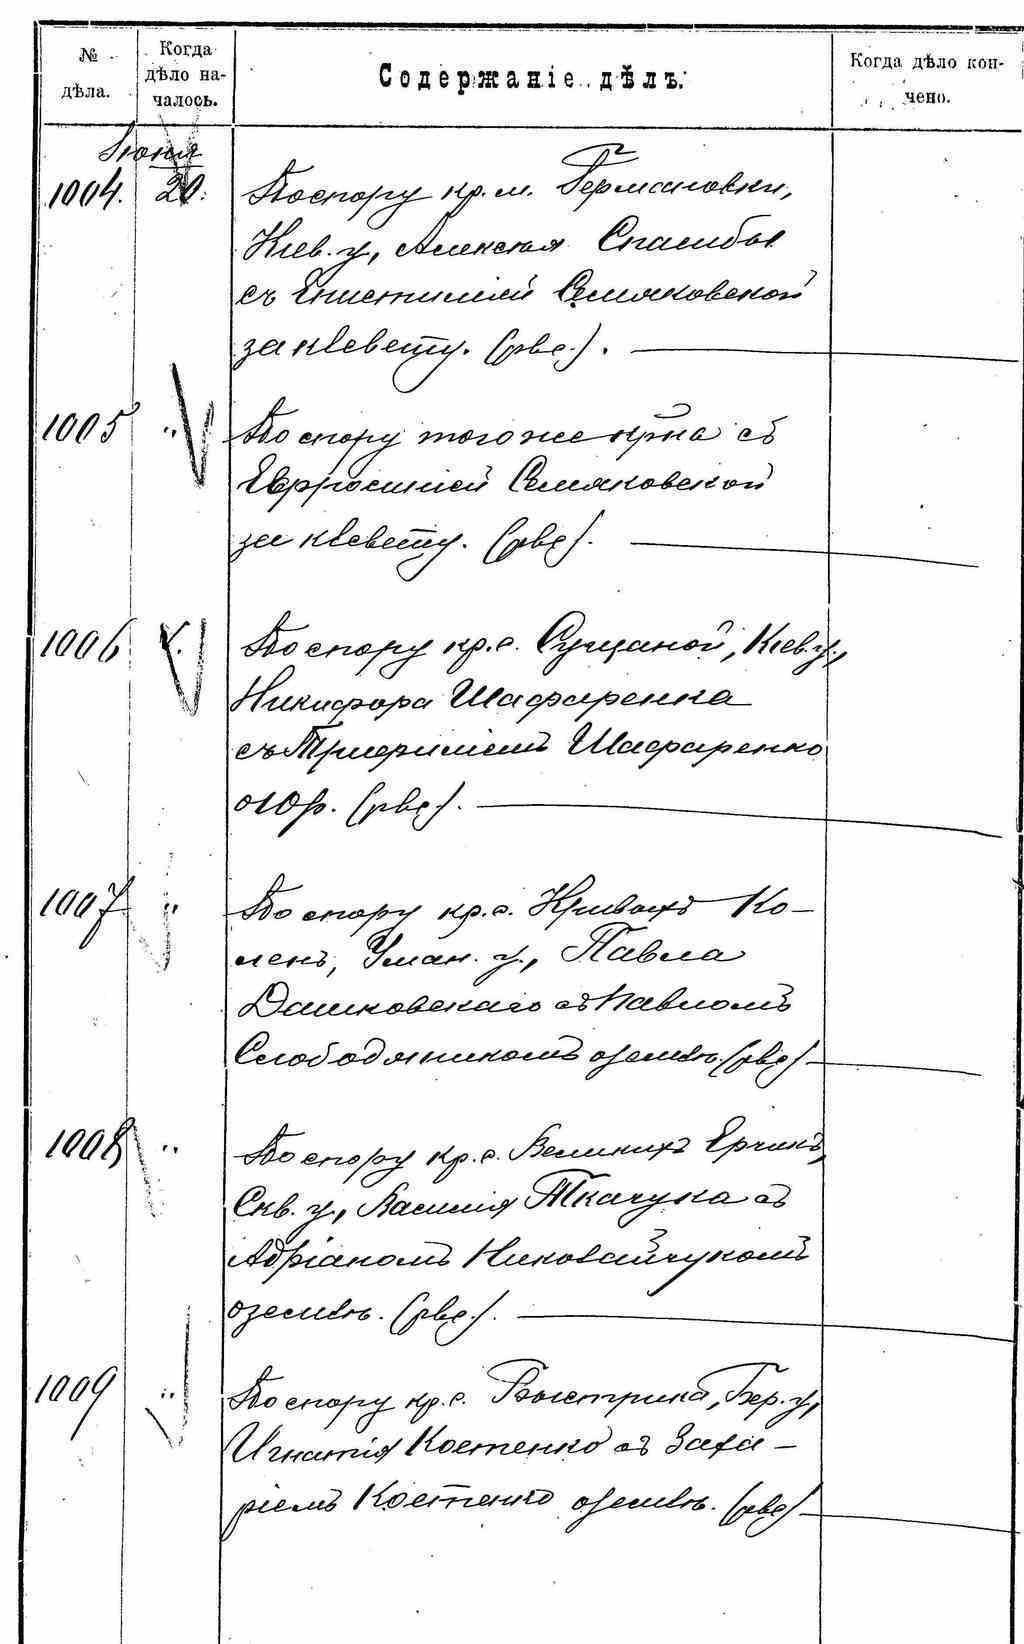 № дѣла.
Когда дѣло на-
чалось.
Содержаніе дѣлъ.
Когда дѣло кон-
чено.
Іюня
1004. 20. По спору кр. м. Германовки,
Кіев. у., Алексѣя Спасибы
съ Епистиміей Семяковской
за клевету. (рве.).
1005 " По спору того же кр-на съ
Евфросиніей Семяковской
за клевету. (рве).
1006 По спору кр. с. Сущаной, Кіев. у.,
Никифора Шафаренка
съ Трифиліемъ Шафаренко
о (рве.).
1007 " По спору кр. с. Кривыхъ Ко-
ленъ, Уман. у., Павла
Дашковскаго съ Павломъ
Слободяникомъ о землѣ. (рве)
1008 " По спору кр. с. Великихъ Ерчикъ,
Скв. у., Василія Ткачука съ
Адріаномъ Николайчукомъ
о землѣ. (рве.).
1009 " По спору кр. с. Быстрика, Бер. у.,
Игнатія Костенко съ Заха-
ріемъ Костенко о землѣ. (рве)